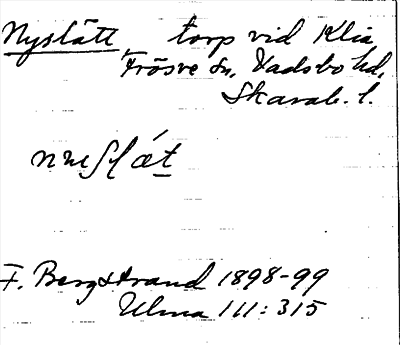 Nyslätt, torp vid Klia
Frösve sn, Vadsbo hd,
Skarab. l.
F. Bergstrand 1898-99
Ulma 111:315